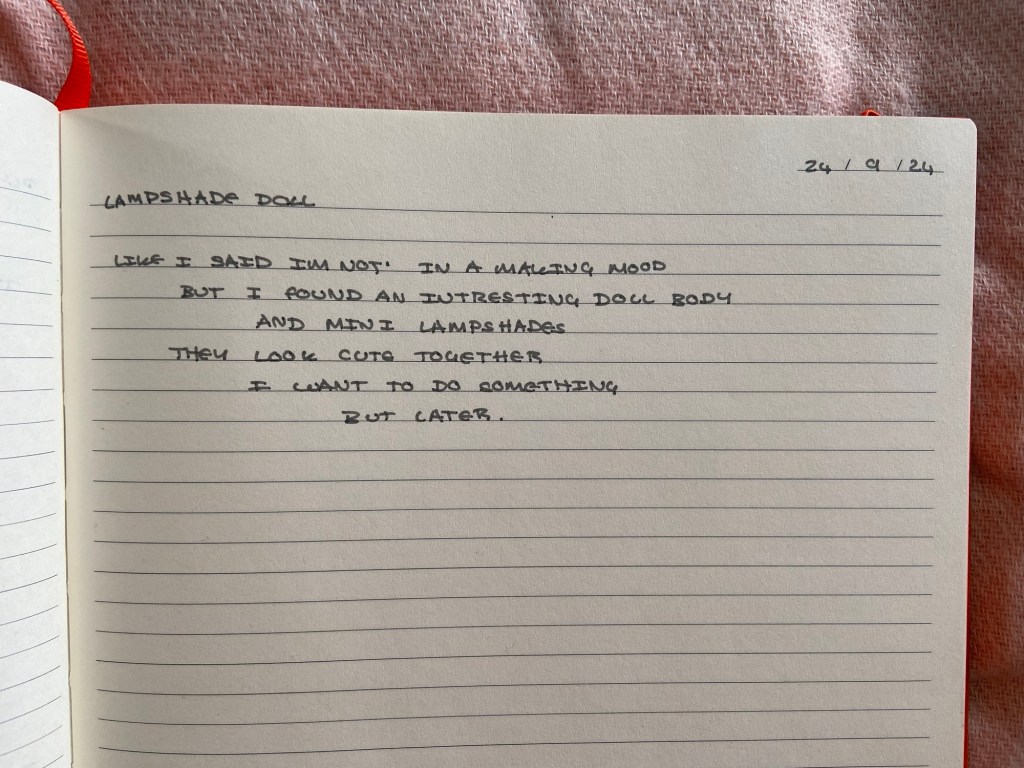 24 / 9 / 24
LAMPSHADE DOLL
LIKE I SAID I'M NOT' IN A MAKING MOOD
BUT I FOUND AN INTRESTING DOLL BODY
AND MINI LAMPSHADES
THEY LOOK CUTE TOGETHER
I WANT TO DO SOMETHING
BUT LATER.